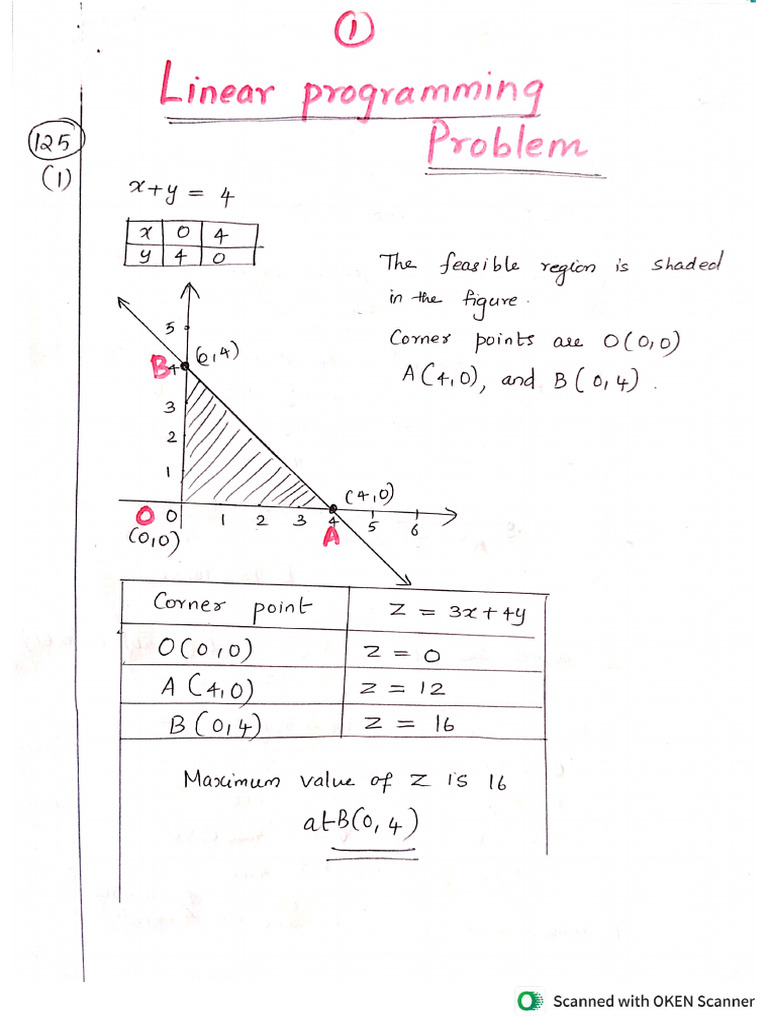 1
Linear programming
Problem
125
(1)
x+y = 4
x 0 4
y 4 0
The feasible region is shaded
in the figure.
Corner points are O(0,0)
A(4,0), and B(0,4).
5
B 4 (0,4)
3
2
1
(4,0)
O 0 1 2 3 4 5 6
(0,0) A
Corner point Z = 3x+4y
O(0,0) Z = 0
A(4,0) Z = 12
B(0,4) Z = 16
Maximum value of Z is 16
at B(0,4)
Scanned with OKEN Scanner